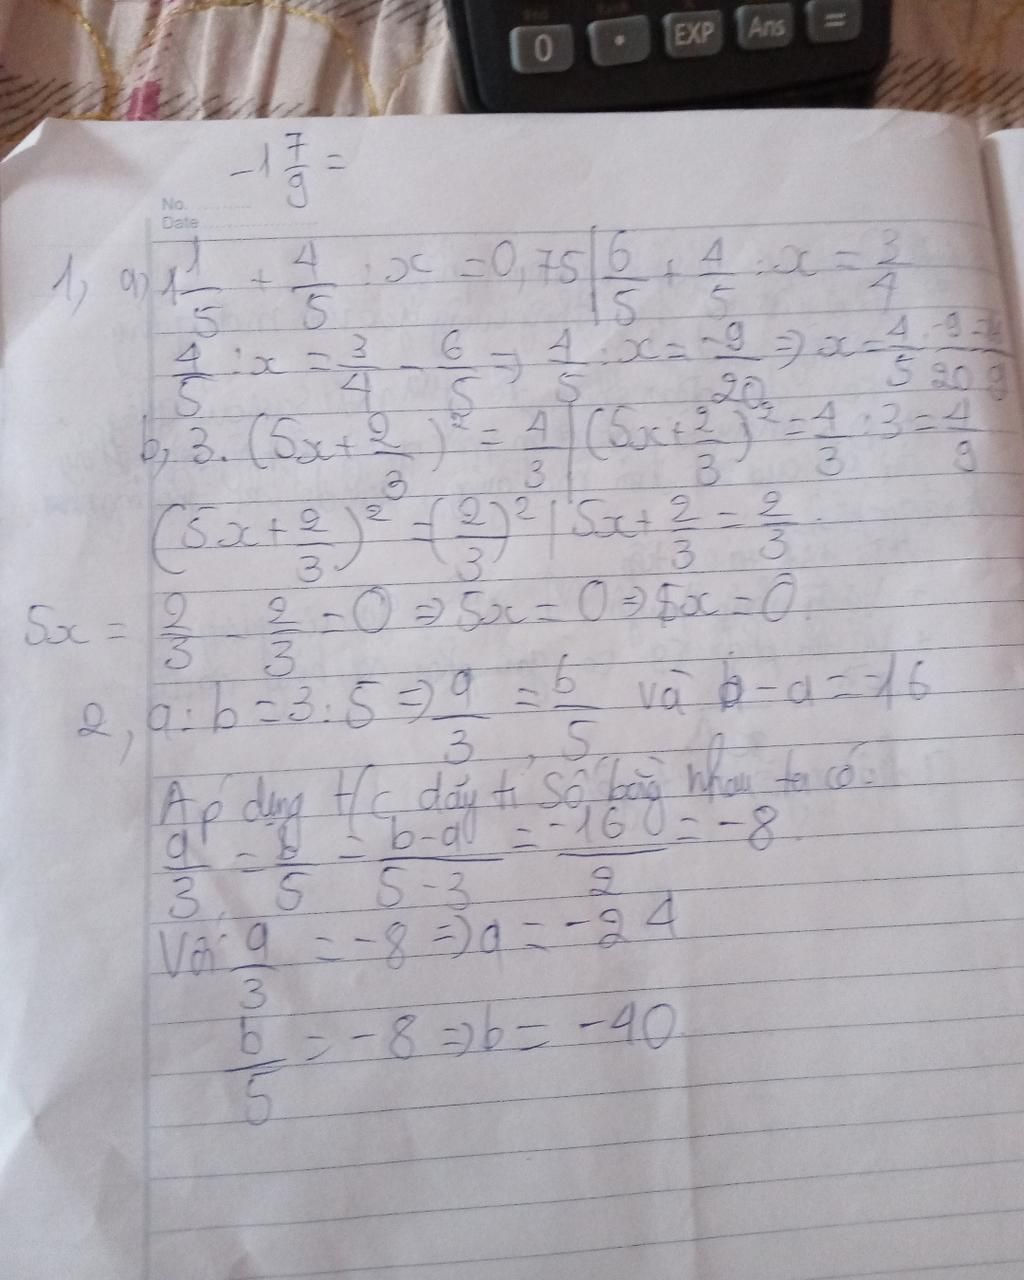 0 . EXP Ans =
-1 7/9 =
No.
Date
1, a, 1 1/5 + 4/5 : x = 0,75 | 6/5 + 4/5 : x = 3/4
4/5 : x = 3/4 - 6/5 => 4/5 : x = -9/20 => x = 4/5 : -9/20 =
b, 3. (5x + 2/3)² = 4/3 | (5x + 2/3)² = 4/3 : 3 = 4/9
(5x + 2/3)² = (2/3)² | 5x + 2/3 = 2/3
5x = 2/3 - 2/3 = 0 => 5x = 0 => x = 0
2, a : b = 3 : 5 => a/3 = b/5 và b - a = -16
Áp dụng t/c dãy tỉ số bằng nhau ta có:
a/3 = b/5 = b-a/5-3 = -16/2 = -8
Với a/3 = -8 => a = -24
b/5 = -8 => b = -40